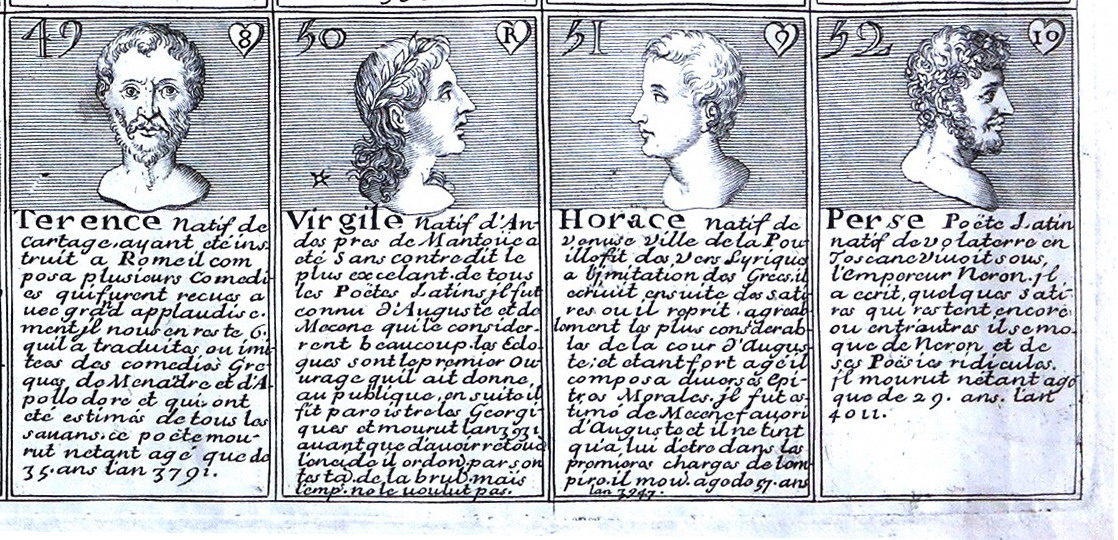 49 8
Terence Natif de
Cartage ayant eté ins
truit a Rome il com
posa plusieurs Comedi
es qui furent recues a
uec grād applaudisse.
ment il nous en reste 6.
quil a traduites ou imi
tees des comedies Gre
ques de Menādre et d'A
pollodore et qui ont
eté estimés de tous les
sauans. ce poëte mou-
rut netant agé que de
35. ans lan 3791.
50 R
Virgile Natif d'An-
des pres de Mantoue a
eté sans contredit le
plus excelant de tous
les Poëtes Latins jl fut
connu d'Auguste et de
Mecene qui le consider-
rent beaucoup. les Eclo
gues sont le premier Ou
urage quil ait donné
au publique, en suite il
fit paroistre les Georgi
ques et mourut lan 3931
auant que d'auoir retouc
leneide il ordoñ par son
testa. de la brul. mais
lemp. ne le uoulut pas.
51 9
Horace natif de
Venuse Ville de la Pou
ille fit des Vers Lyrique
a l'jmitation des Grecs. il
ecriuit ensuite des sati
res ou il reprit agreab
lement les plus considerab
les de la cour d'Augus
te; et etant fort agé il
composa diuerses Epi-
tres Morales. jl fut es
timé de Mecene fauori
d'Auguste et il ne tint
qu'a lui d'etre dans les
premieres charges de lem
pire. il mou. agé de 57. ans
lan 3947.
52 10
Perse Poëte Latin
natif de volaterre en
Toscane Viuoit sous,
l'Empereur Neron. jl
a ecrit, quelques Sati-
res qui restent encore
ou entr'autres il se mo-
que de Neron, et de
ses Poësies ridicules.
jl mourut nétant agé
que de 29. ans. lan
4011.